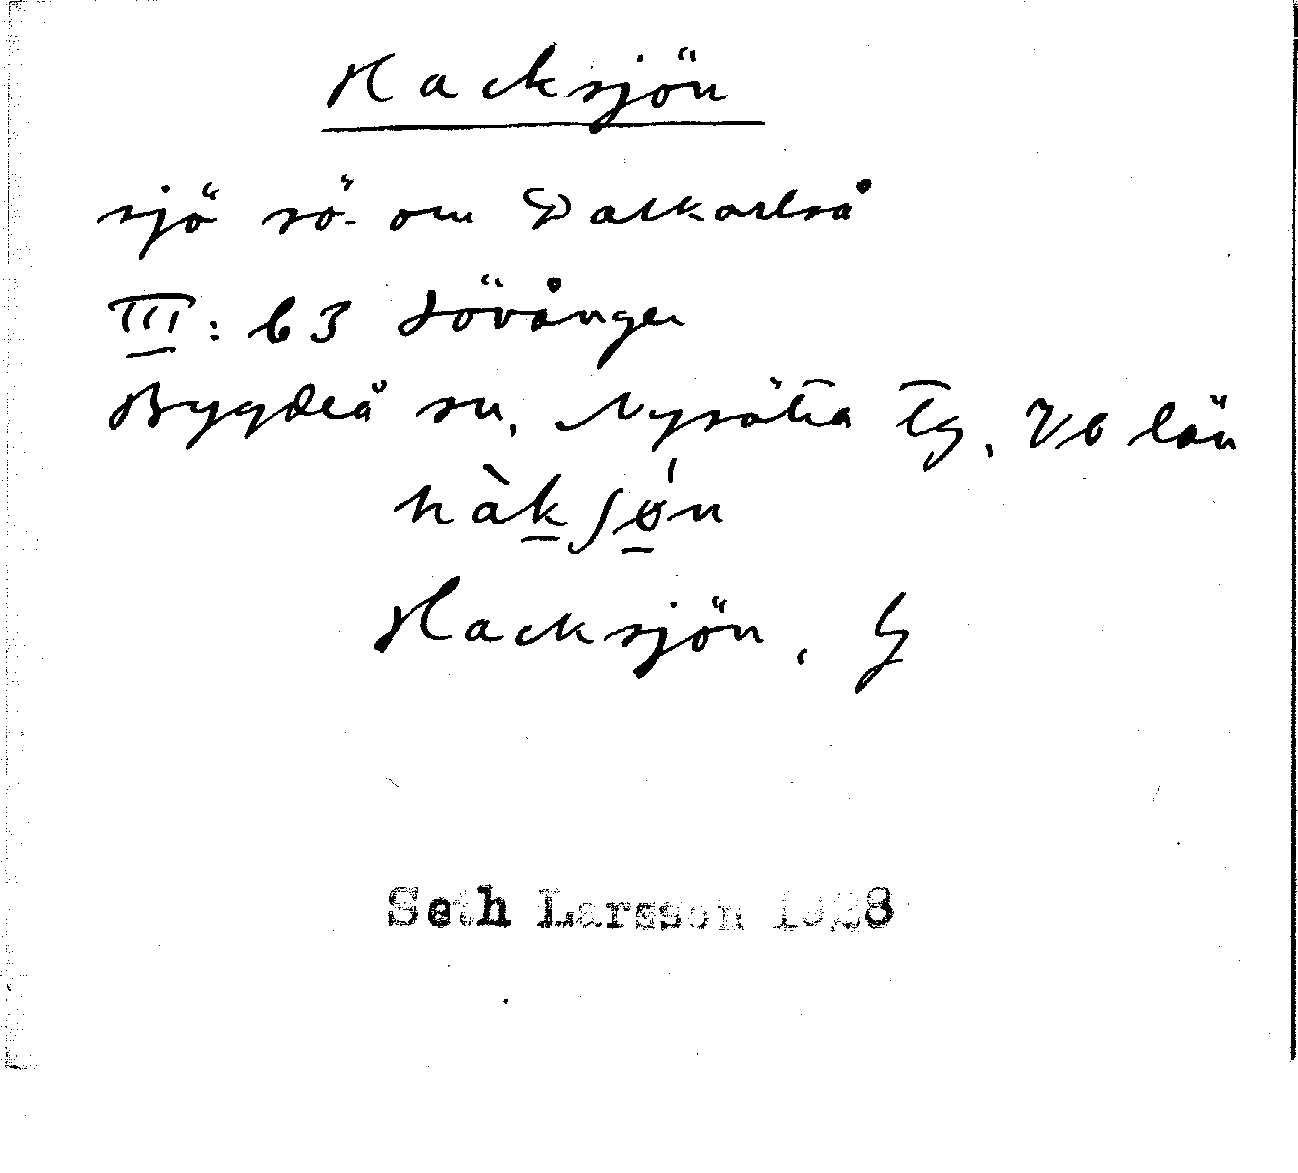 Hacksjön
sjö sö. om Dalkarlså
III: 63 Lövånger
Bygdeå sn, Nysätra tg, Vb län
hàkʃø̀n
Hacksjön,
Seth Larsson 1928